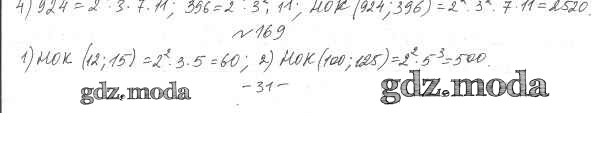 4) 924 = 2² · 3 · 7 · 11; 396 = 2² · 3² · 11; НОК (924; 396) = 2² · 3² · 7 · 11 = 2520.
№ 169
1) НОК (12; 15) = 2² · 3 · 5 = 60; 2) НОК (100; 125) = 2² · 5³ = 500.
- 31 -
gdz.moda
gdz.moda